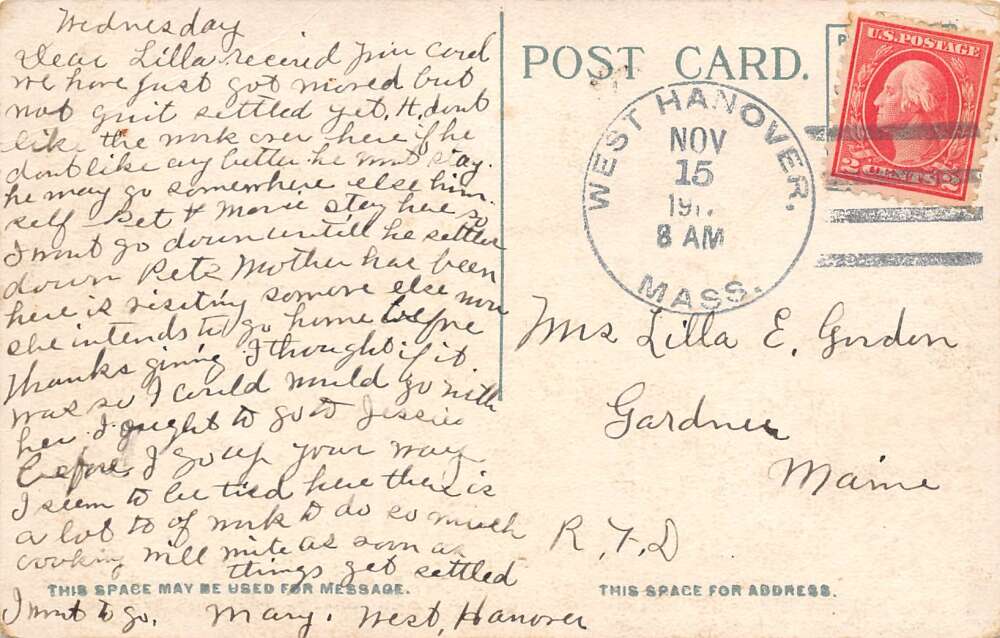 Wednesday
Dear Lilla recired your cord
we have just got moved but
not quit settled yet. H. dont
like the work over here if he
dont like any better he wont stay.
he may go somewhere else him
self Bet & Marie stay here so
I wont go down untill he settles
down Petz Mother has been
here is visiting somone else now
she intends to go home before
thanks giving I thought if it
was so I could would go with
her I ought to go to Jessies
before I go up your way
I seem to be tied here there is
a lot to of work to do so much
cooking will write as soon as
things get settled
I want to go. Mary. West, Hanover
THIS SPACE MAY BE USED FOR MESSAGE.
POST CARD.
U.S. POSTAGE
2 CENTS 2
WEST HANOVER,
NOV
15
191
8 AM
MASS.
Mrs Lilla E. Gordon
Gardner
Maine
R, F, D
THIS SPACE FOR ADDRESS.